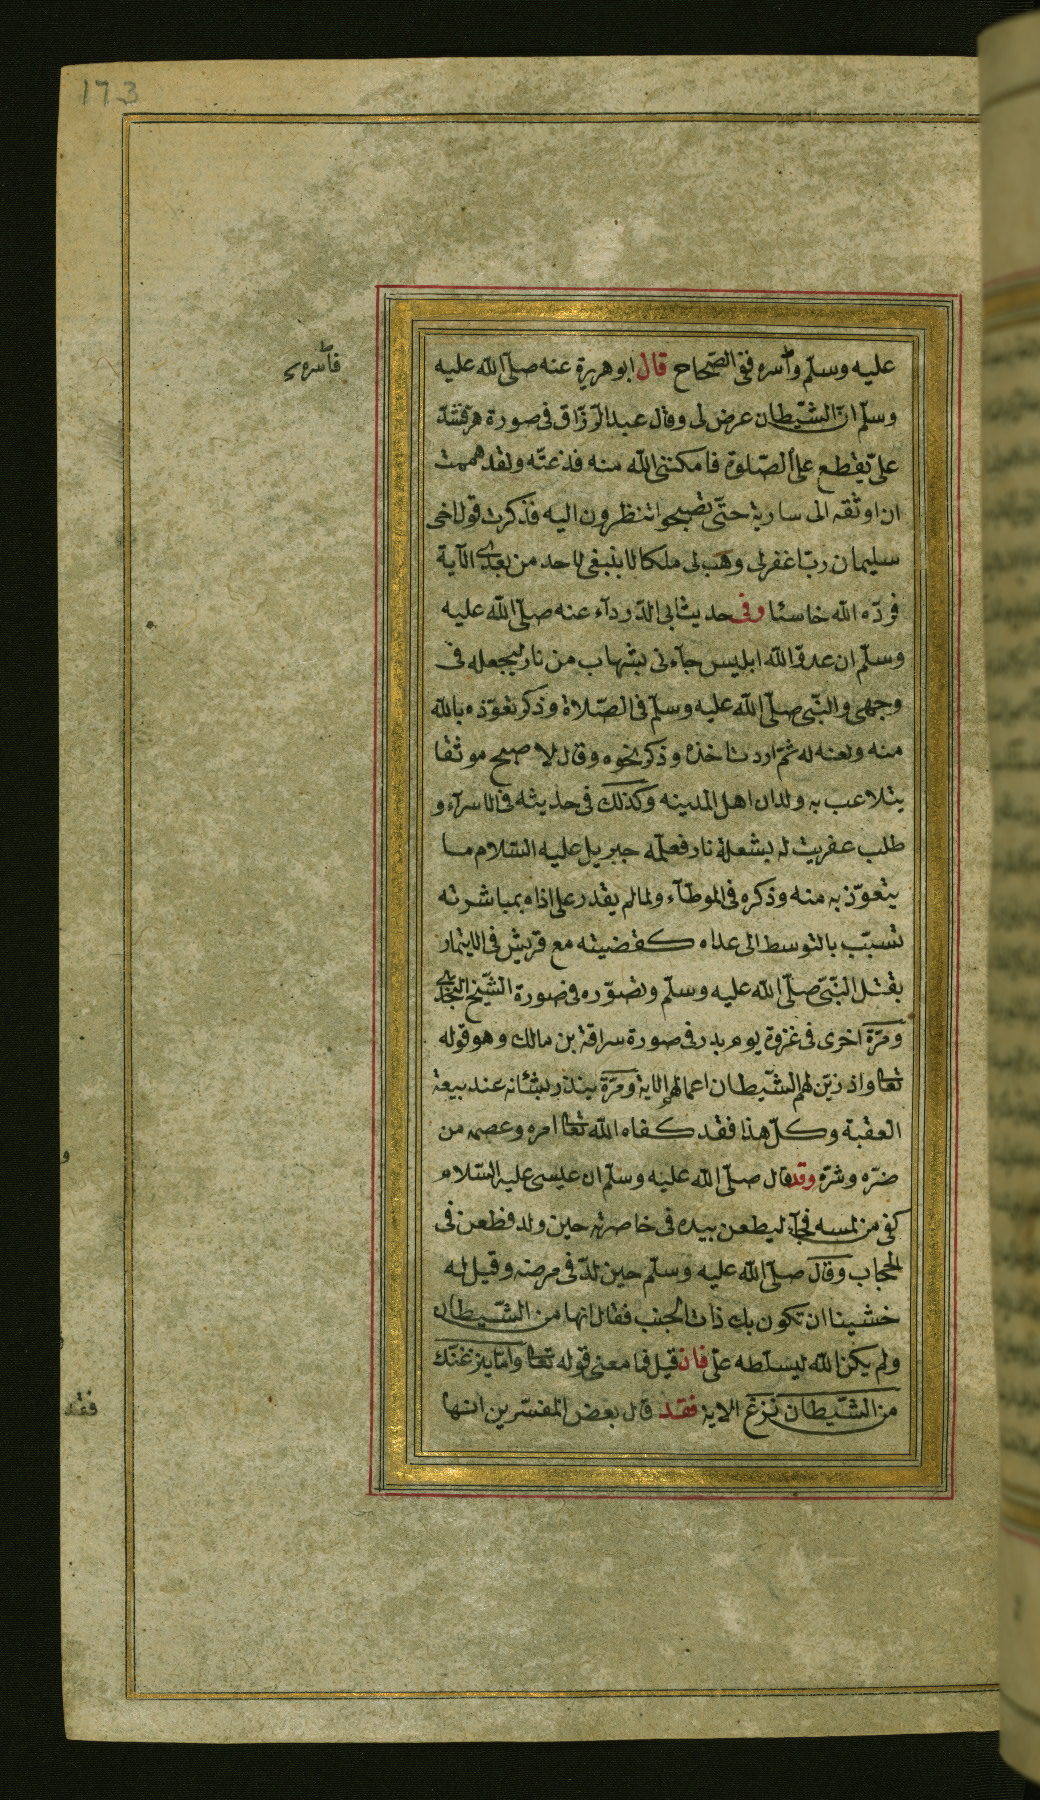 173
عليه وسلّم وأسره ففى الصّحاح قال ابو هريرة عنه صلّى اللّه عليه
وسلّم انّ الشّيطان عرض لى وقال عبد الرّزّاق فى صورة هرّ فشدّ
علىّ يقطع علىّ الصّلوة فامكننى اللّه منه فذعتّه ولقد هممت
ان اوثقه الى سارية حتّى تصبحوا تنظرون اليه فذكرت قول اخى
سليمان ربّ اغفرلى وهب لى ملكا لا ينبغى لاحد من بعدى الآية
فردّه اللّه خاسئا وفى حديث ابى الدّرداء عنه صلّى اللّه عليه
وسلّم ان عدوّ اللّه ابليس جاءنى بشهاب من نار ليجعله فى
وجهى والنّبى صلّى اللّه عليه وسلّم فى الصّلاة وذكر تعوّذه باللّه
منه ولعنه له ثمّ اردت اخذه وذكر نحوه وقال لاصبح موثقا
يتلاعب به ولدان اهل المدينه وكذلك فى حديثه فى الاسرآء و
طلب عفريت له بشعلة نار فعلّمه جبريل عليه السّلام ما
يتعوّذ به منه وذكره فى الموطّآء ولمالم يقدر على اذاه بمباشرته
تسبّب بالتوسط الى عداه كقضيته مع قريش فى الايتمار
بقتل النّبىّ صلّى اللّه عليه وسلّم وتصوّره فى صورة الشّيخ النّجدى
ومرّة اخرى فى غزوة يوم بدر فى صورة سراقة بن مالك وهو قوله
تعا واذ زيّن لهم الشّيطان اعمالهم الاية ومرّة ينذر بشانه عند بيعة
العقبة وكلّ هذا فقد كفاه اللّه تعا امره وعصمه من
ضرّه وشرّه وقد قال صلّى اللّه عليه وسلّم ان عيسى عليه السّلام
كفى من لمسه فجآء ليطعن بيده فى خاصرته حين ولد فطعن فى
الحجاب وقال صلّى اللّه عليه وسلّم حين لدّ فى مرضه وقيل له
خشينا ان تكون بك ذات الجنب فقال انها من الشّيطان
ولم يكن اللّه ليسلّطه علىّ فان قيل فما معنى قوله تعا وامّا ينزغنّك
من الشّيطان نزغ الاية فقد قال بعض المفسّرين انها
فأسره
فقد